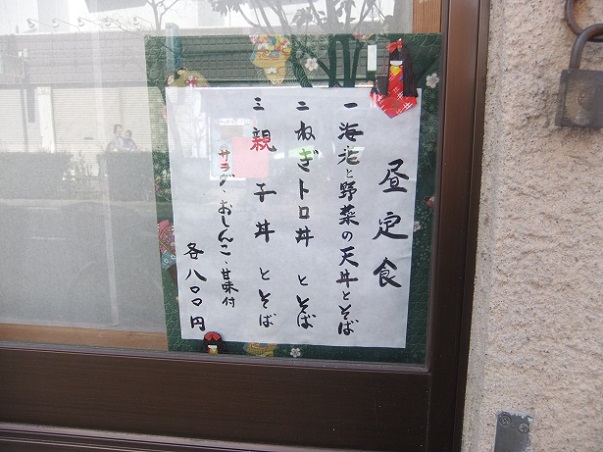 昼定食
一海老と野菜の天丼とそば
二ねぎトロ丼とそば
三親子丼とそば
サラダ・おしんこ・甘味付
各八〇〇円